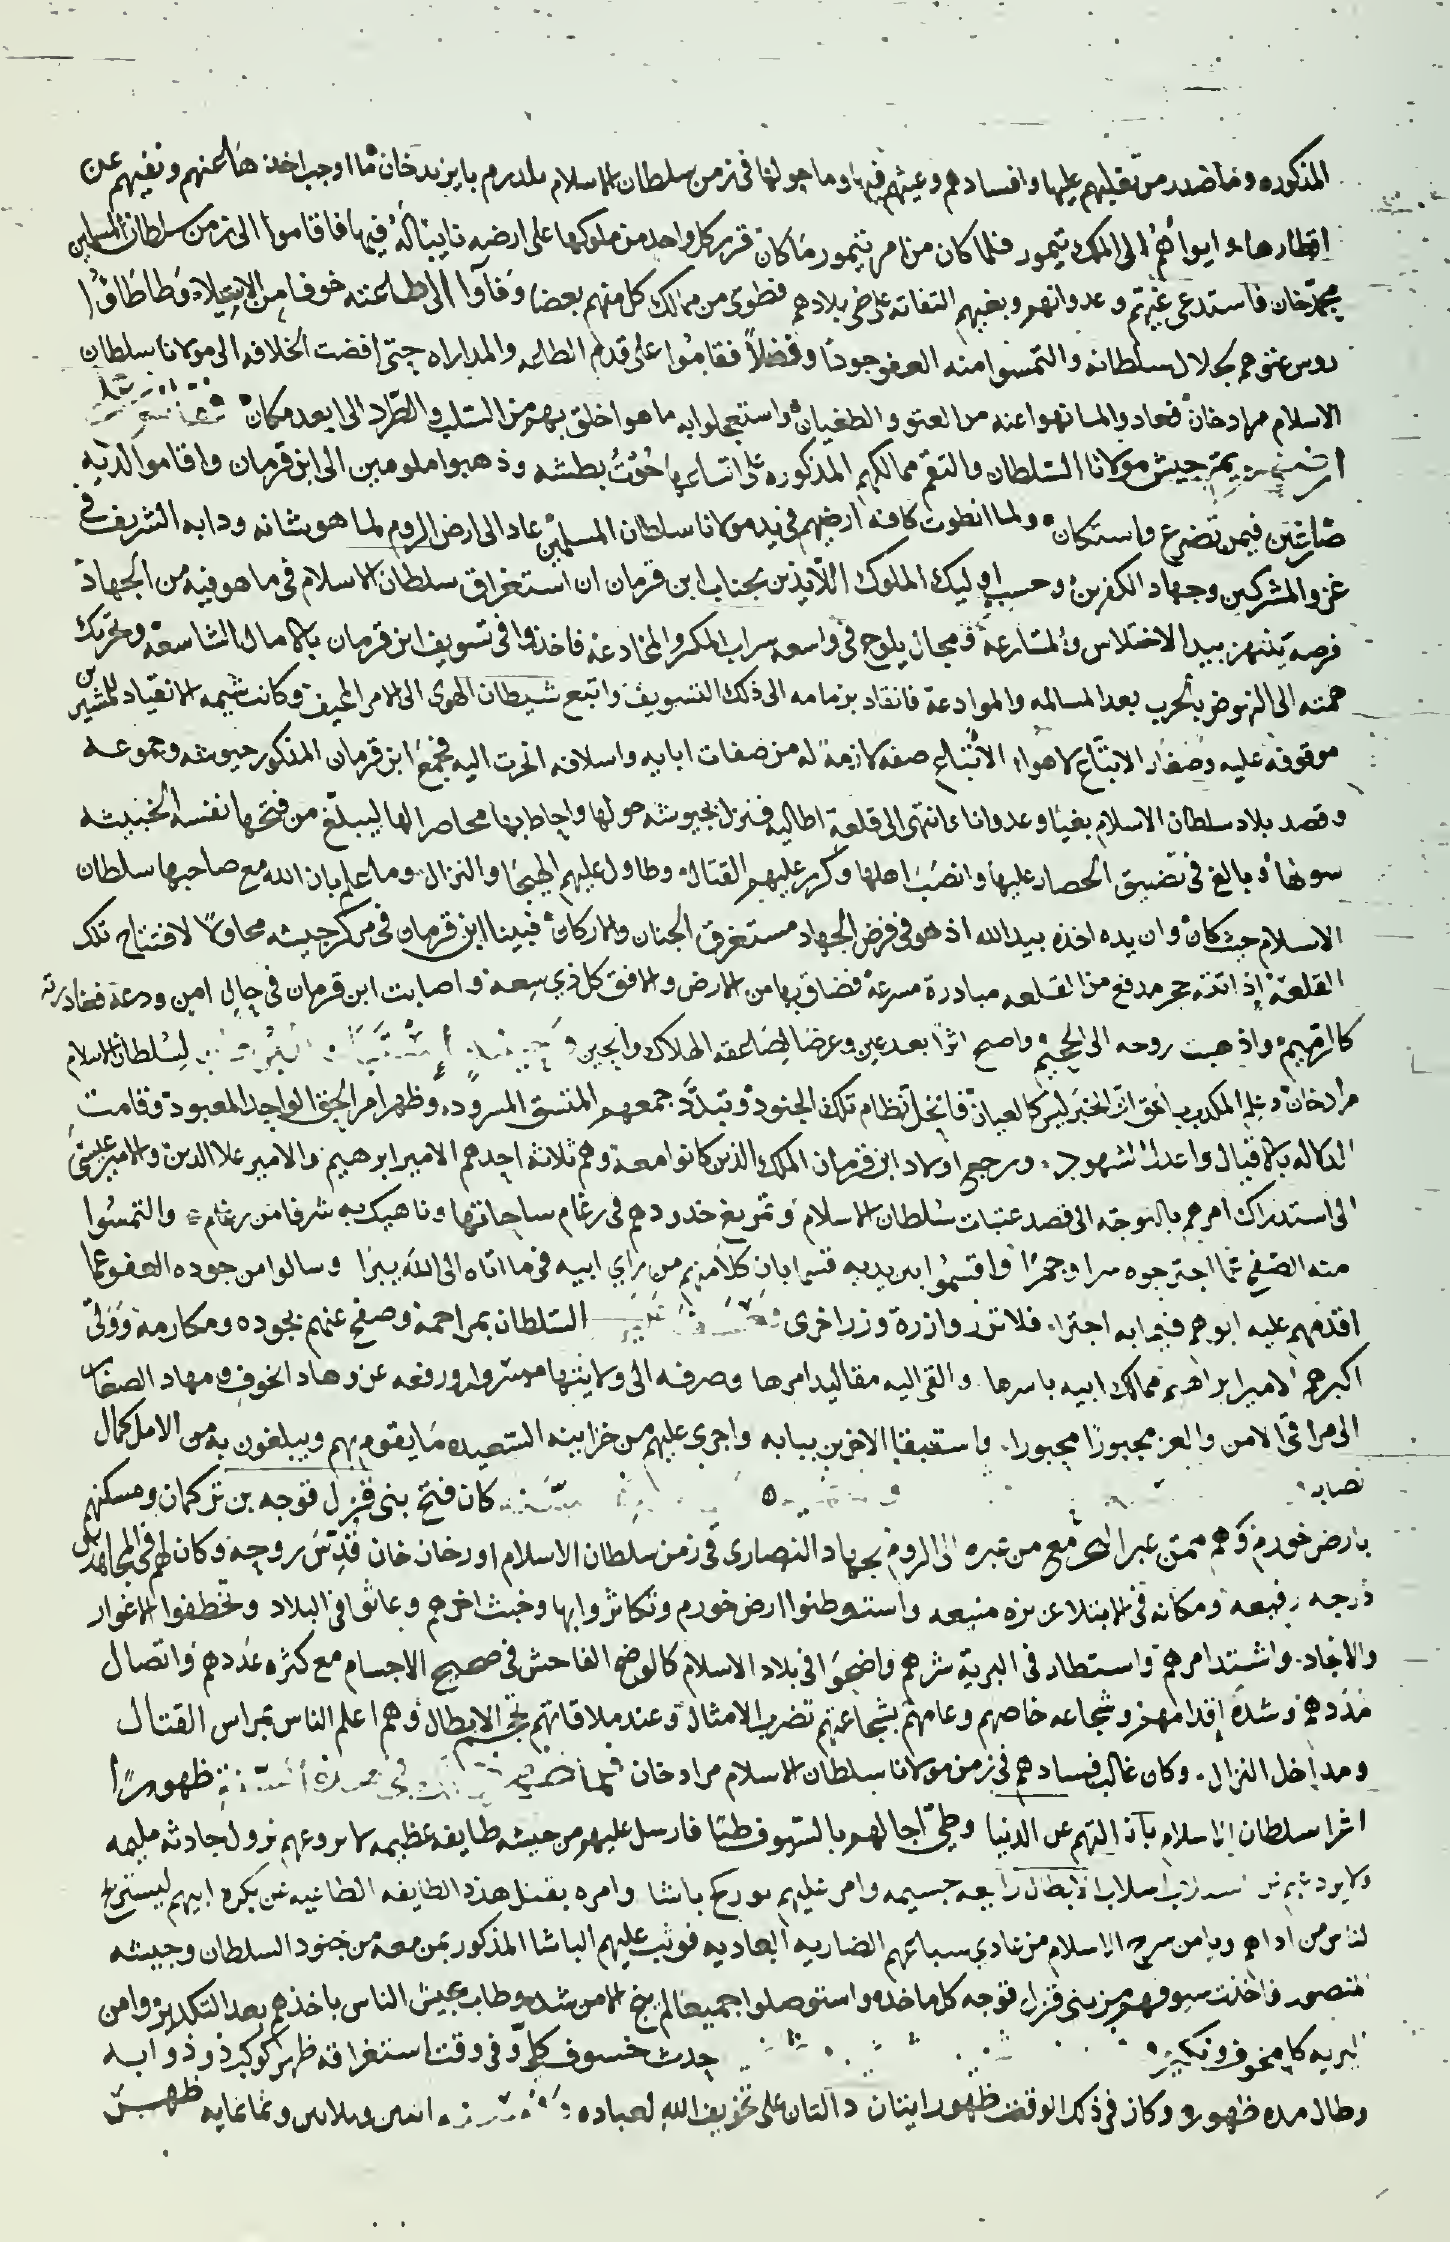 المذكوره وما صدر من تغلبهم عليها وافسادهم وعيثهم فيها وما حولها في زمن سلطان الاسلام يلدرم بايزيد خان مما اوجب اخذها عنهم ونفيهم عن
اقطارها وايوائهم الى الملك تيمور فلما كان من امر تيمور ما كان قرر كل واحد من ملوكها على ارضه نايبا له فيها فاقاموا الى زمن سلطان المسلمين
محمد خان فاستدعى غيتم وعدوانهم وبغيهم التفاته على بلادهم فطوى من ممالك كل منهم بعضا وفاوا الى طاعته خوفا من الاستيلاء وطاطاوا
روس عتوهم لجلال سلطانه والتمسوا منه العفو جودا وفضلا فقاموا على قدم الطاعه والمداراه حتى افضت الخلافه الى مولانا سلطان
الاسلام مراد خان فعادوا لما نهوا عنه من العتو والطغيان واستعجلوا به ما هو اخلق بهم من السلب والطرد الى ابعد مكان
جيش مولانا السلطان والتقم ممالكهم المذكوره على اتساعها حوت بطشه وذهبوا ملومين الى ابن قرمان واقاموا لديه
صاغرين فيمن تضرع واستكان ولما انطوت كافه ارضهم في يد مولانا سلطان المسلمين عاد الى ارض الروم لما هو شانه ودابه الشريف في
غزو المشركين وجهاد الكفرين وحسب اوليك الملوك اللايذين بجناب ابن قرمان ان استغراق سلطان الاسلام في ما هو فيه من الجهاد
فرصة تنتهز بيد الاختلاس والمسارعة ومجال يلوح في واسعه سراب المكر والمخادعة فاخذوا في تسويف ابن قرمان بالامال الشاسعة وتحريك
همته الى النهوض بالحرب بعد المسالمه والموادعة فانقاد بزمامه الى ذلك التسويف واتبع شيطان الهوى الى الامر المخيف وكانت شيمه الانقياد للمشيرين
موقوفة عليه وصفات الاتباع لاهواء الاتباع صفه لازمة له من صفات ابايه واسلافه انجرت اليه فجمع ابن قرمان المذكور جيوشه وجموعه
وقصد بلاد سلطان الاسلام بغيا وعدوانا انتهى الى قلعة اطاليه فنزل بجيوشه حولها واحاط بها محاصرا لها ليبلغ من فتحها نفسه الخبيثه
سولها وبالغ في تضييق الحصار عليها وانصب اهلها وكرر عليهم القتال وطاول عليهم الهيجا والنزال وما علم بان الله مع صاحبها سلطان
الاسلام حيث كان وان يده اخذه بيد الله اذ هو في فرض الجهاد مستغرق الجنان والاركان فبينا ابن قرمان في مركز جيشه محاولا لافتتاح تلك
القلعة اذ اتته حجر مدفع من القلعه مبادرة مسرعة فضاق بها من الارض والافق كل ذي سعة واصابت ابن قرمان في حال امن ودعة فغادرته
كالرميم واذهبت روحه الى الجحيم واصبح اثرا بعد عين وعرضا لصاعقه الهلاك والحين لسلطان الاسلام
مراد خان الخبر ليس كالعيان فانحل نظام تلك الجنود وتبدد جمعهم المنتسق المسرود وظهر امر الحق الواحد المعبود وقامت
بالاقبال واعدل الشهود ورجع اولاد ابن قرمان الملك الذين كانوا معه وهم ثلاثة احدهم الامير ابرهيم والامير علا الدين والامير عيسى
الى استدراك امرهم بالتوجه الى قصد عتبات سلطان الاسلام وتمريغ خدودهم في رغام ساحاتها وناهيك به شرفا من رغام والتمسوا
منه الصفح عما اجترحوه سرا وجهرا واقتسموا بين يديه قسما بان كلا منهم من راي ابيه في ما اتاه الى الله يبرا وسالوا من جوده العفو عما
اقدمهم عليه ابوهم فيما به اجترا فلا تزر وازرة وزر اخرى السلطان بمراحمه وصفح عنهم بجوده ومكارمه وولى
اكبرهم الامير ابراهيم ممالك ابيه باسرها والقى اليه مقاليد امرها وصرفه الى ولايتها مسرورا ورفعه عن وهاد الخوف ومهاد الصغار
الى مراقي الامن والعز مجبورا محبورا واستبقا الاخرين ببابه واجرى عليهم من خزاينه السعيده ما يقوم بهم ويبلغون به من الامل كمال
نصابه كان فتح بني قزل قوجه بن تركمان ومسكنهم
بارض خورم وهم ممن عبر البحر مع من عبره الى الروم لجهاد النصارى في زمن سلطان الاسلام اورخان خان قدس روحه وكان لهم في المجاهدين
درجه رفيعه ومكانه في الابتلا عزيزه منيعه واستوطنوا ارض خورم وتكاثروا بها وخبث اخرهم وعاثوا في البلاد وتخطفوا الاغوار
والانجاد واشتد امرهم واستطار في البرية شرهم واضحوا في بلاد الاسلام كالوضح الفاحش في صحيح الاجسام مع كثره عددهم واتصال
مددهم وشدة اقدامهم وشجاعه خاصهم وعامهم بشجاعتهم تضرب الامثال وعند ملاقاتهم تحجم الابطال وهم اعلم الناس بمراس القتال
ومداخل النزال وكان غالب فسادهم في زمن مولانا سلطان الاسلام مراد خان فلما ظهورا
اثر سلطان الاسلام بازالتهم عن الدنيا وطي اجالهم بالسيوف طيا فارسل عليهم من جيشه طايفه عظيمه لا يروعهم نزول حادثه مليمه
ولا يردهم عن اسلاب الابطال رايعه جسيمه وامر عليهم يورج باشا وامره بقتل هذه الطايفه الطاغيه عن بكره ابيهم ليستريح
الناس من اذاهم ويامن سرح الاسلام من عادي سباعهم الضاريه العاديه فوثب عليهم الباشا المذكور بمن معه من جنود السلطان وجيشه
المنصور فاخذت سيوفهم من بني قزل قوجه كل ماخذ واستوصلوا جميعا لم ينج الا من شذ وطاب عيش الناس باخذهم بعد التكدير وامن
البريه كل مخوف ونكير حدث خسوف كلي وفي وقت استغراقه ظهر كوكب ذو ذوابه
وطال مده ظهوره وكان في ذلك الوقت ظهور ايتان دالتان على تخويف الله لعباده اثنين وثلاثين وثمانمايه ظهر